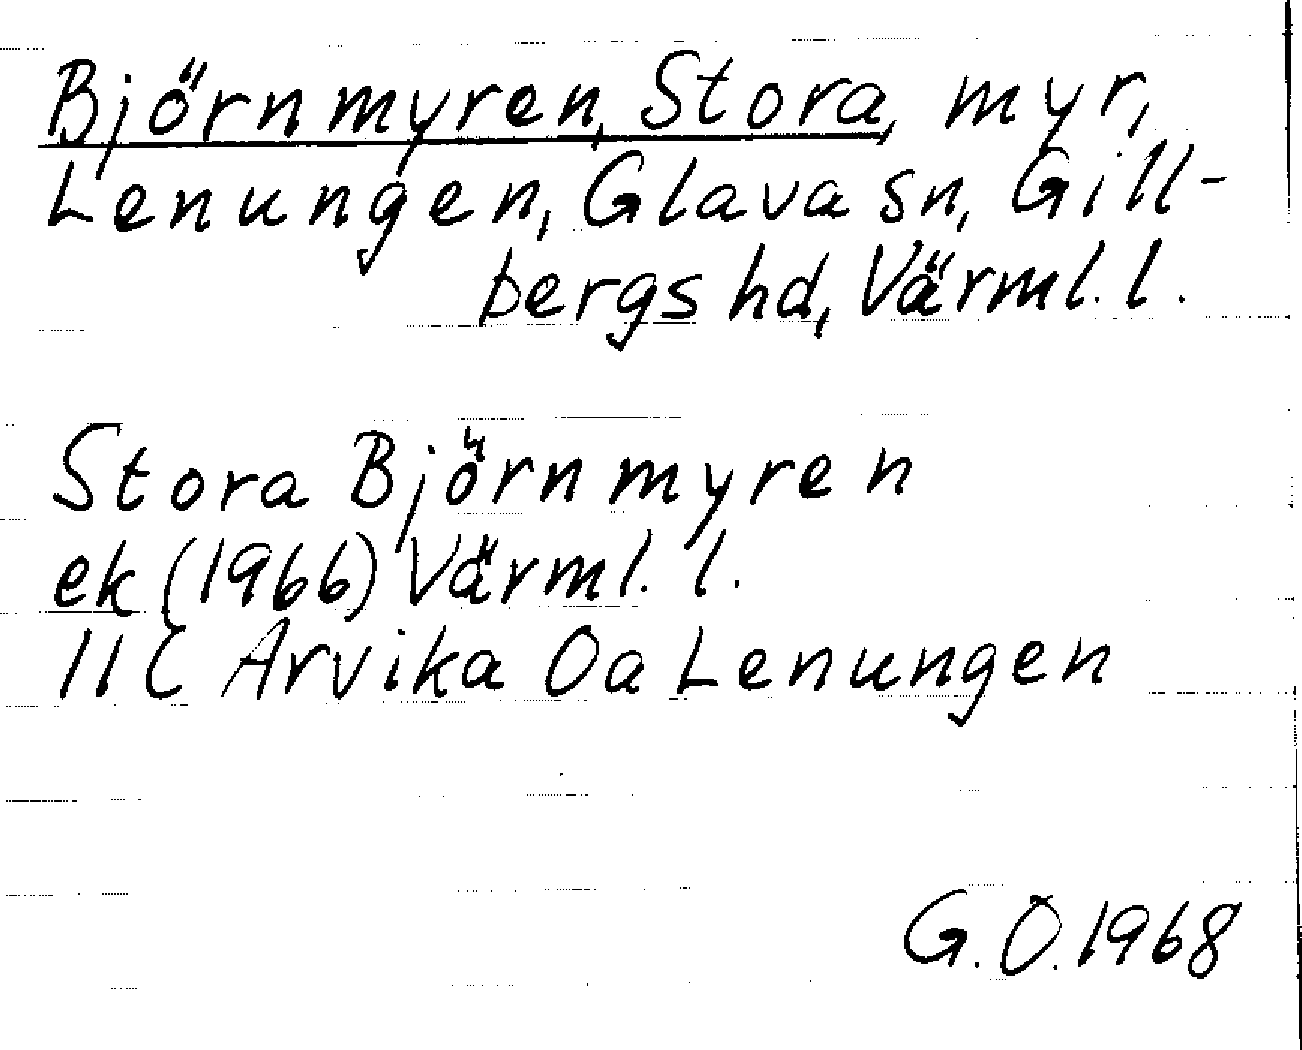 Björnmyren, Stora, myr,
Lenungen, Glava sn, Gill-
bergs hd, Värml. l.
Stora Björnmyren
ek (1966) Värml. l.
11C Arvika 0a Lenungen
G. O. 1968